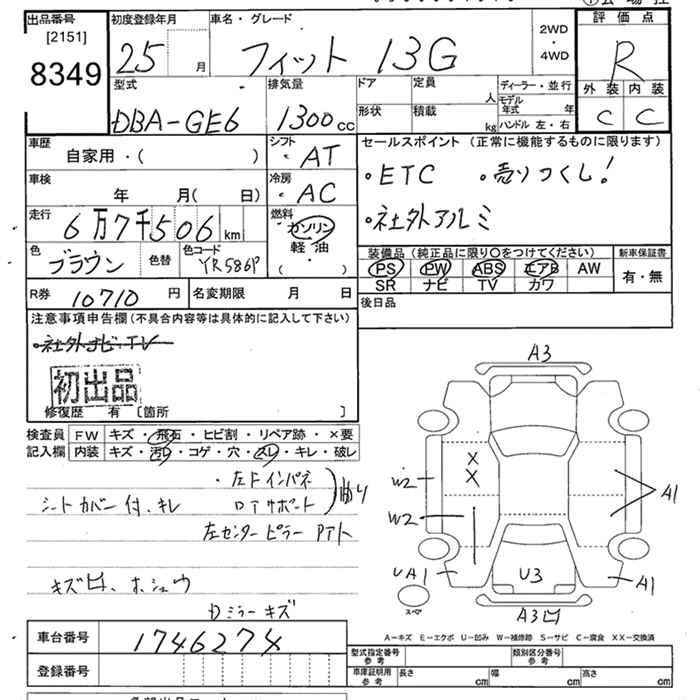 出品番号
[2151]
8349
初度登録年月
25 月
車名・グレード
フィット 13G
2WD
・
4WD
評価点
R
外装 内装
C C
型式
DBA-GE6
排気量
1300cc
ドア
形状
定員 人
積載 kg
ディーラー・並行
モデル年式 年
ハンドル 左・右
車歴
自家用・( )
シフト
・AT
セールスポイント (正常に機能するものに限ります)
・ETC ・売りつくし!
・社外アルミ
車検
年 月( 日)
冷房
・AC
走行
6万7千506km
燃料
ガソリン
軽・油
( ・ )
色
ブラウン
色替
色コード
YR586P
装備品 (純正品に限り○をつけてください)
PS PW ABS エアB AW
SR ナビ TV カワ
新車保証書
有・無
R券 10710円
名変期限 月 日
後日品
注意事項申告欄(不具合内容等は具体的に記入して下さい)
・社外ナビ・TV
初出品
修復歴 有 [箇所 ]
検査員
記入欄
FW キズ・飛石・ヒビ割・リペア跡・×要
内装 キズ・汚レ・コゲ・穴・スレ・キレ・破レ
・左Fインパネ
シートカバー付、キレ
ロアサポート
左センターピラー
キズ凹、ホシュウ
Dミラーキズ
A3
X
X
W2
W2
A1
UA1
U3
A1
A3凹
スペア
A-キズ E-エクボ U-凹み W-補修跡 S-サビ C-腐食 XX-交換済
車台番号
1746274
登録番号
型式指定番号
参考
類別区分番号
参考
車庫証明用
参考
長さ cm
幅 cm
高さ cm